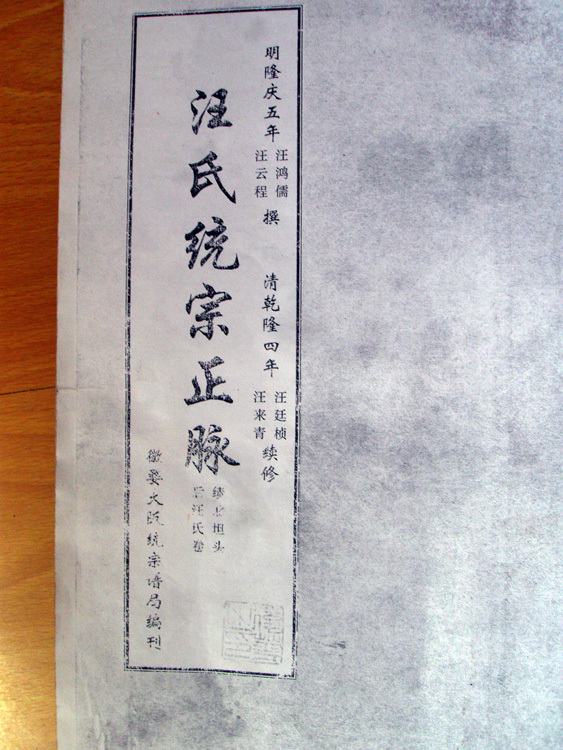 明隆庆五年 汪鸿儒 汪云程 撰 清乾隆四年 汪廷桢 汪来青 续修
汪氏统宗正脉
坦头
汪氏卷
徽婺大阪统宗谱局编刊